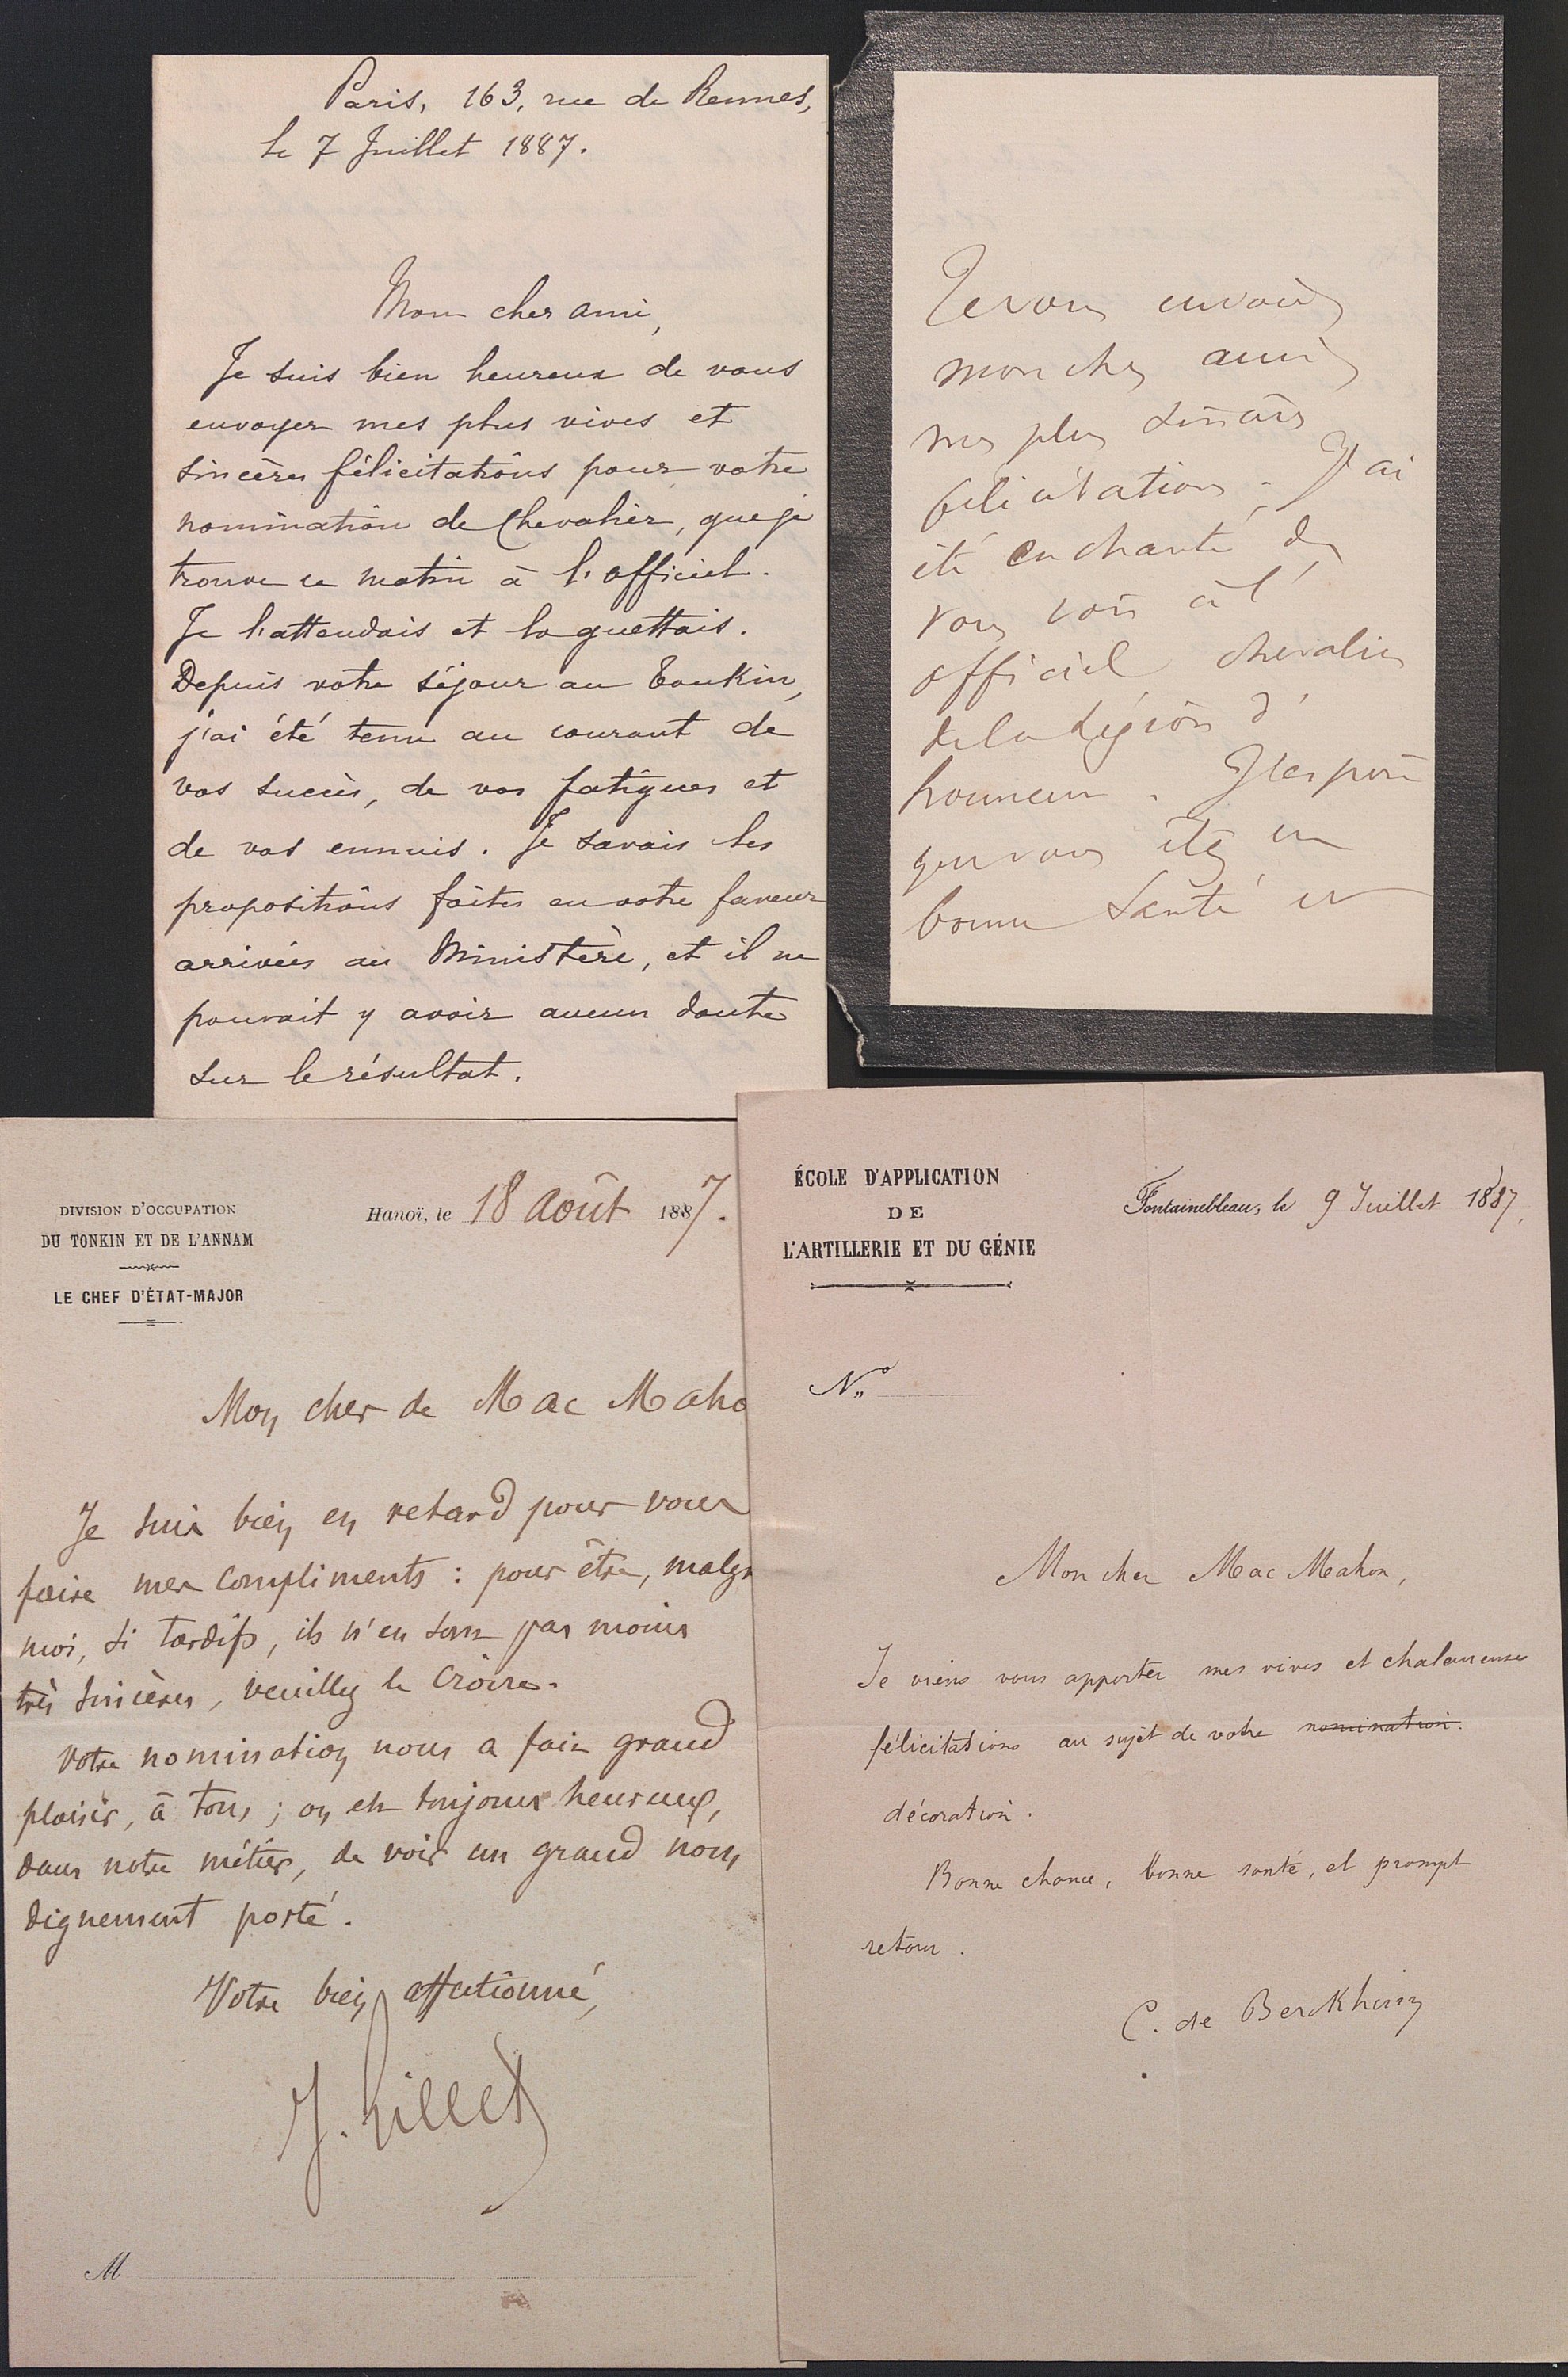 Paris, 163, rue de Rennes,
le 7 Juillet 1887.
Mon cher ami,
Je suis bien heureux de vous
envoyer mes plus vives et
sincères félicitations pour votre
nomination de Chevalier, que je
trouve ce matin à l'officiel.
Je l'attendais et la guettais.
Depuis votre séjour au Tonkin,
j'ai été tenu au courant de
vos succès, de vos fatigues et
de vos ennuis. Je savais les
propositions faites en votre faveur
arrivées au Ministère, et il ne
pouvait y avoir aucun doute
sur le résultat.
Je vous envoie
mon cher ami
mes plus sincères
félicitations. J'ai
été enchanté de
vous voir à l'
officiel chevalier
de la légion d'
honneur. J'espère
que vous êtes en
bonne santé et
DIVISION D'OCCUPATION
DU TONKIN ET DE L'ANNAM
LE CHEF D'ÉTAT-MAJOR
Hanoï, le 18 Août 1887.
Mon cher de Mac Maho
Je suis bien en retard pour vous
faire mes compliments : pour être, malgr
moi, si tardifs, ils n'en sont pas moins
très sincères, veuillez le croire.
Votre nomination nous a fait grand
plaisir, à tous ; on est toujours heureux,
dans notre métier, de voir un grand nom
dignement porté.
Votre bien affectionné,
J. Pillet
M
ÉCOLE D'APPLICATION
DE
L'ARTILLERIE ET DU GÉNIE
Fontainebleau, le 9 Juillet 1887.
N°
Mon cher Mac Mahon,
Je viens vous apporter mes vives et chaleureuses
félicitations au sujet de votre nomination.
décoration.
Bonne chance, bonne santé, et prompt
retour.
C. de Berckheim